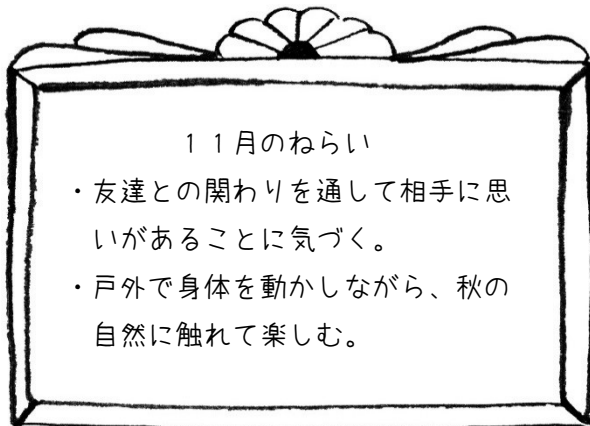 １１月のねらい
・友達との関わりを通して相手に思
いがあることに気づく。
・戸外で身体を動かしながら、秋の
自然に触れて楽しむ。